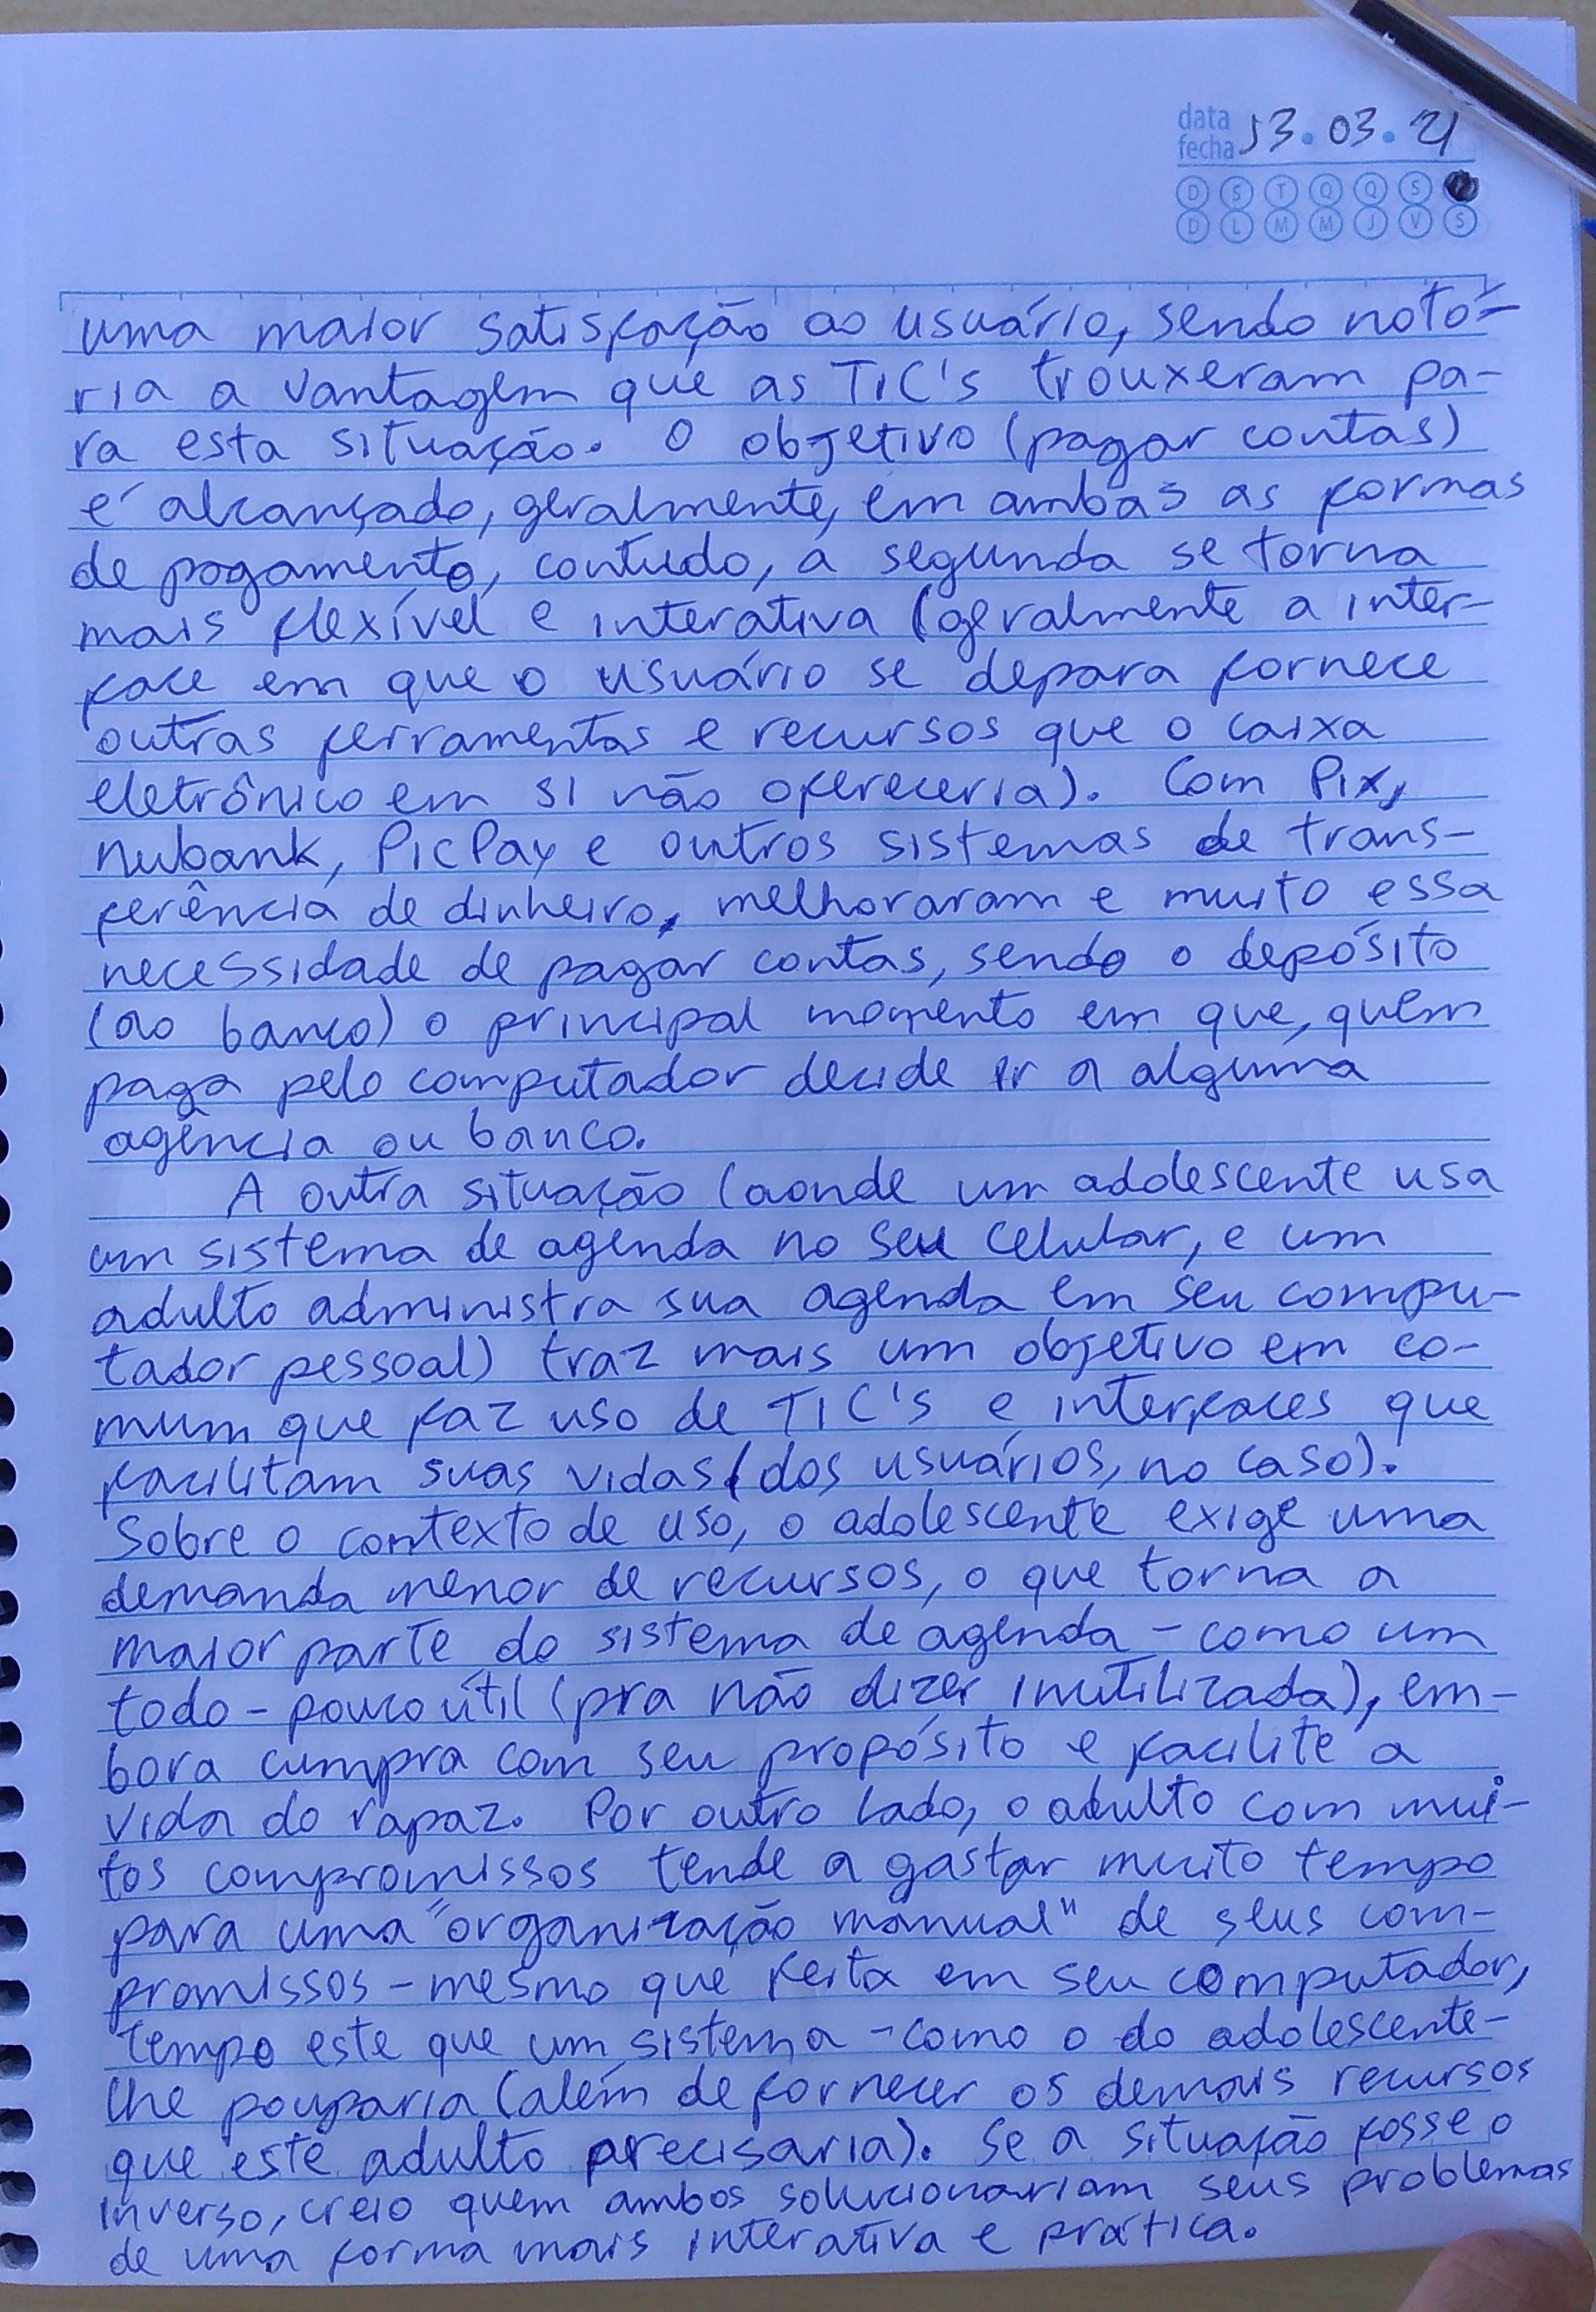 data
fecha 13.03.21
D S T Q Q S
D L M M J V S
uma maior satisfação ao usuário, sendo notó-
ria a vantagem que as TIC's trouxeram pa-
ra esta situação. O objetivo (pagar contas)
é alcançado, geralmente, em ambas as formas
de pagamento, contudo, a segunda se torna
mais flexível e interativa (geralmente a inter-
face em que o usuário se depara fornece
outras ferramentas e recursos que o caixa
eletrônico em si não ofereceria). Com Pix,
Nubank, PicPay e outros sistemas de trans-
ferência de dinheiro, melhoraram e muito essa
necessidade de pagar contas, sendo o depósito
(ao banco) o principal momento em que, quem
paga pelo computador decide ir a alguma
agência ou banco.
A outra situação (aonde um adolescente usa
um sistema de agenda no seu celular, e um
adulto administra sua agenda em seu compu-
tador pessoal) traz mais um objetivo em co-
mum que faz uso de TIC's e interfaces que
facilitam suas vidas (dos usuários, no caso).
Sobre o contexto de uso, o adolescente exige uma
demanda menor de recursos, o que torna a
maior parte do sistema de agenda - como um
todo - pouco útil (pra não dizer inutilizada), em-
bora cumpra com seu propósito e facilite a
vida do rapaz. Por outro lado, o adulto com mui-
tos compromissos tende a gastar muito tempo
para uma "organização manual" de seus com-
promissos - mesmo que feita em seu computador,
tempo este que um sistema - como o do adolescente -
lhe pouparia (além de fornecer os demais recursos
que este adulto precisaria). Se a situação fosse o
inverso, creio quem ambos solucionariam seus problemas
de uma forma mais interativa e prática.